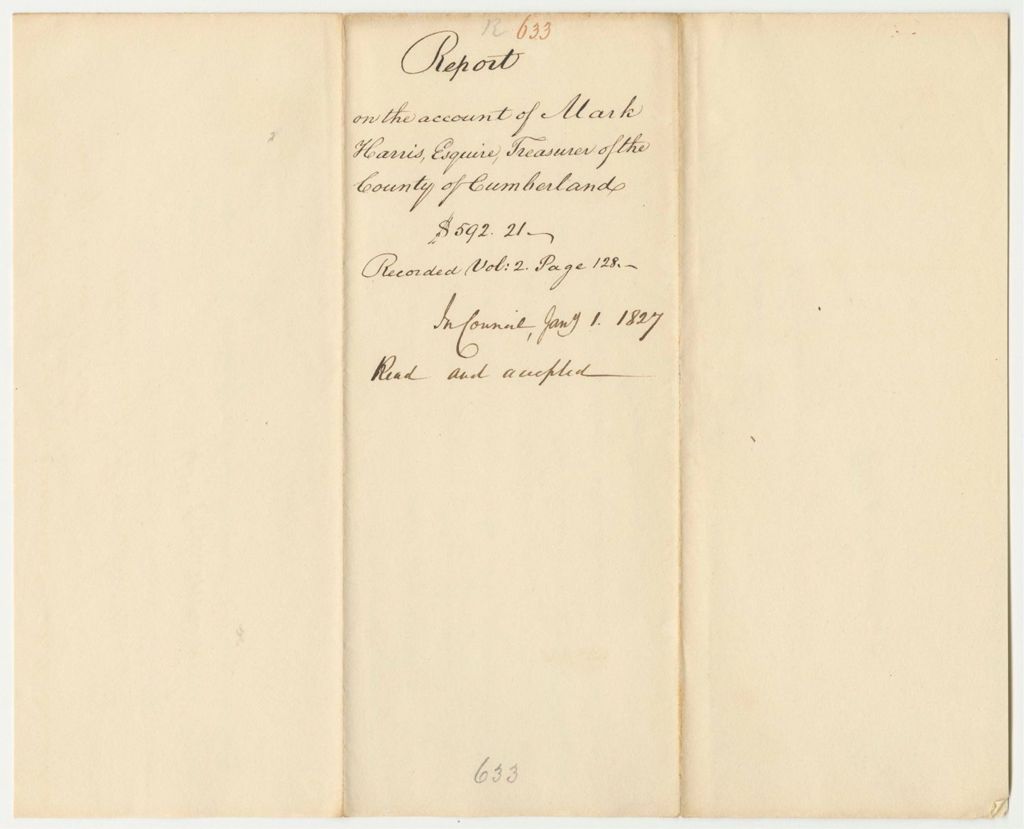 R 633
Report
on the account of Mark
Harris, Esquire, Treasurer of the
County of Cumberland
$592. 21
Recorded Vol: 2. Page 128.
In Council, Jany 1. 1827
Read and accepted
633